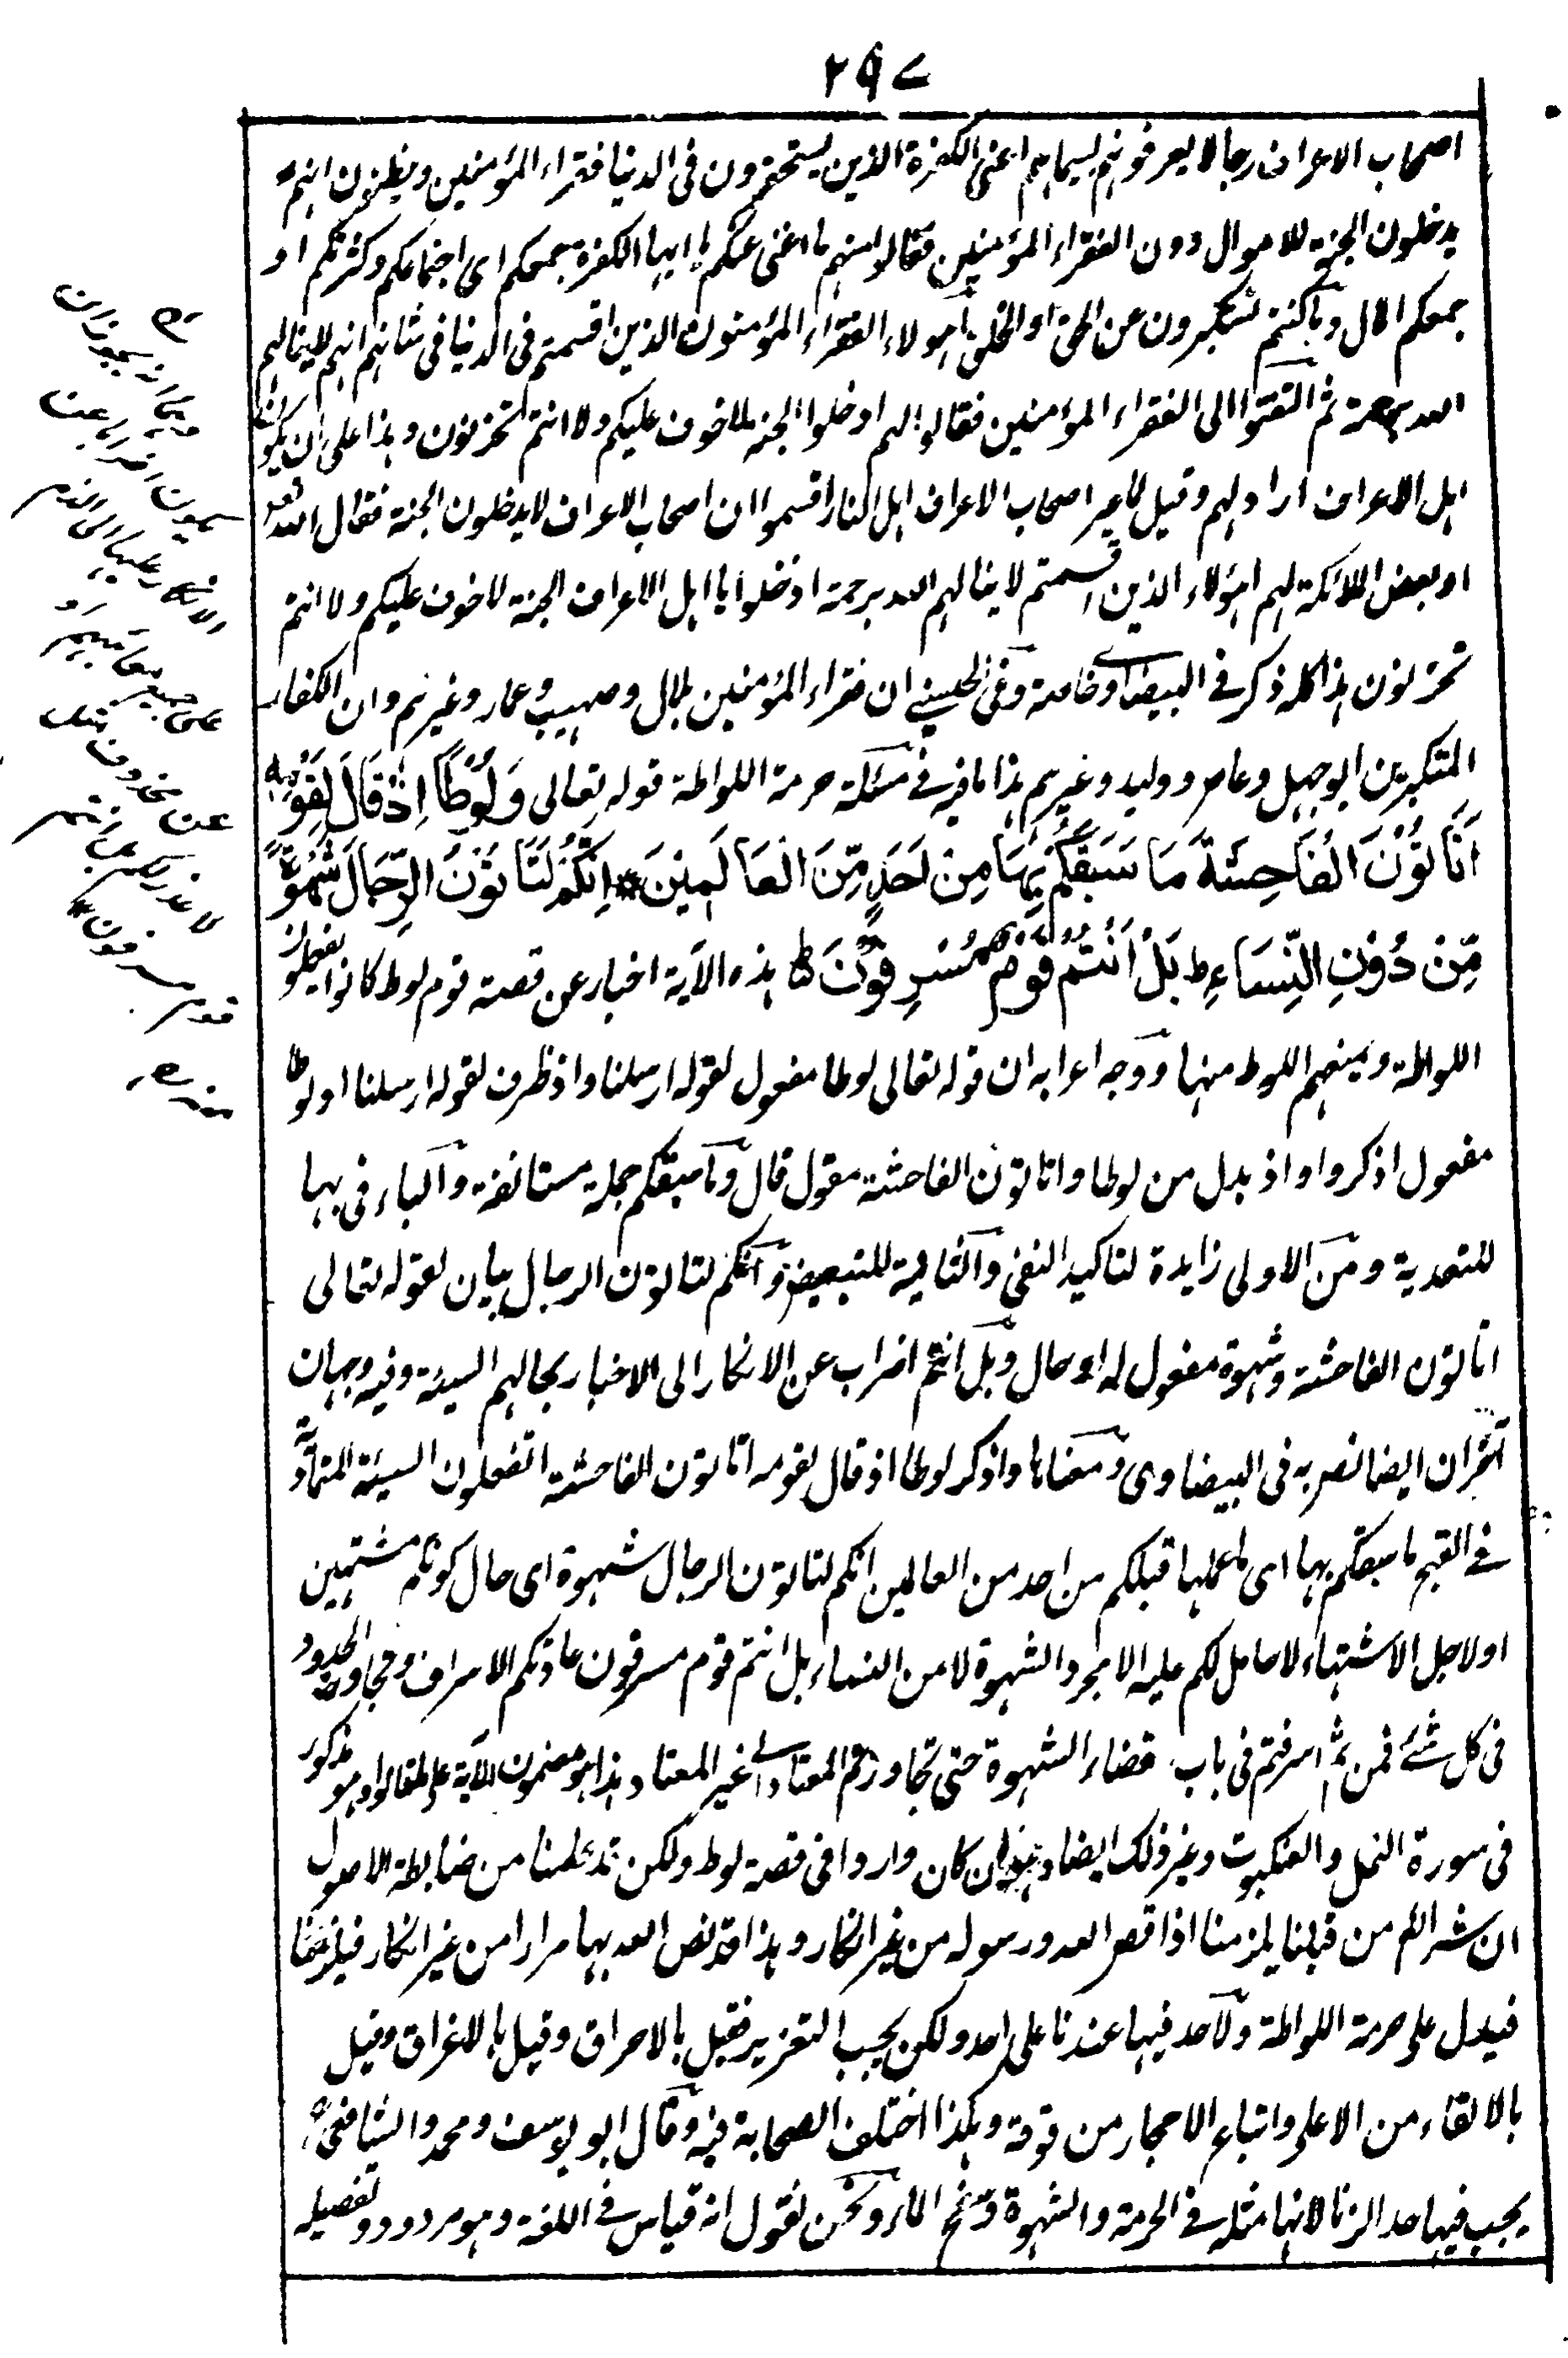 ٢٩٧
اصحاب الاعراف رجالا يعرفونهم بسيماهم اعني الكفرة الذين يستحقرون في الدنيا فقراء المؤمنين ويظنون انهم
يدخلون الجنة للاموال دون الفقراء المؤمنين فقالوا منهم ما اغنى عنكم يا ايها الكفرة جمعكم اى اجتماعكم وكثرتكم او
جمعكم المال وما كنتم تستكبرون عن الحق او الخلق أهولاء الفقراء المؤمنون الذين اقسمتم في الدنيا في شانهم انهم لاينالهم
الله برحمة ثم التفتوا الى الفقراء المؤمنين فقالوا لهم ادخلوا الجنة لا خوف عليكم ولا انتم تحزنون وهذا على ان يكون
اهل الاعراف ارادلهم وقيل لما عير اصحاب الاعراف اهل النار اقسموا ان اصحاب الاعراف لا يدخلون الجنة فقال الله تعالى
او بعض الملائكة لهم اهؤلاء الذين اقسمتم لا ينالهم الله برحمة ادخلوا يا اهل الاعراف الجنة لا خوف عليكم ولا انتم
تحزنون هذا كله ذكر في البيضاوى خاصة وفي الحسيني ان فقراء المؤمنين بلال وصهيب وعمار وغيرهم وان الكفار
المتكبرين ابو جهل وعاص ووليد وغيرهم هذا ما فيه في مسئلة حرمة اللواطة قوله تعالى وَلُوْطًا اِذْ قَالَ لِقَوْمِهٖ
اَتَاْتُوْنَ الْفَاحِشَةَ مَا سَبَقَكُمْ بِهَا مِنْ اَحَدٍ مِّنَ الْعَالَمِيْنَ * اِنَّكُمْ لَتَاْتُوْنَ الرِّجَالَ شَهْوَةً
مِّنْ دُوْنِ النِّسَاءِ ط بَلْ اَنْتُمْ قَوْمٌ مُّسْرِفُوْنَ ط هذه الآية اخبار عن قصة قوم لوط كانوا يفعلون
اللواطة ويمنعهم اللوط منها ووجه اعرابه ان قوله تعالى لوطا مفعول لقوله ارسلنا واذ ظرف لقوله ارسلنا او لوطا
مفعول اذكروا واذ بدل من لوطا واتاتون الفاحشة مقول قال وما سبقكم جملة مستانفة والباء في بها
للتعدية ومن الاولى زايدة لتاكيد النفي والثانية للتبعيض وانكم لتاتون الرجال بيان لقوله تعالى
اتاتون الفاحشة وشهوة مفعول له او حال وبل انتم اضراب عن الانكار الى الاخبار بحالهم السيئة وفيه وجهان
آخران ايضا نص به في البيضاوى ومعناها واذكر لوطا اذ قال لقومه اتاتون الفاحشة اتفعلون السيئة المتمادية
في القبح ما سبقكم بها اى ما عملها قبلكم من احد من العالمين انكم لتاتون الرجال شهوة اى حال كونكم مشتهين
او لاجل الاشتهاء لا حامل لكم عليه الا مجرد الشهوة لا من النساء بل انتم قوم مسرفون عادتكم الاسراف وتجاوز الحدود
في كل شئ فمن ثم اسرفتم في باب قضاء الشهوة حتى تجاوزتم المعتاد الى غير المعتاد هذا هو مضمون الآية على ما قالوا وهو مذكور
في سورة النمل والعنكبوت وغير ذلك ايضا وهو وان كان واردا في قصة لوط ولكن قد علمنا من ضابطة الاصول
ان شرائع من قبلنا يلزمنا اذا قص الله ورسوله من غير انكار وهذا قد نص الله بها مرارا من غير انكار فيلزمنا
فيدل على حرمة اللواطة ولا حد فيها عندنا على احد ولكن يجب التعزير فقيل بالاحراق وقيل بالاغراق وقيل
بالالقاء من الاعلى واتباع الاحجار من فوقه وهكذا اختلف الصحابة فيه وقال ابو يوسف ومحمد والشافعي
يجب فيها حد الزنا لانها مثله في الحرمة والشهوة وسفح الماء ونحن نقول انه قياس في اللغة وهو مردود وتفصيله
يجوز ان
يكون اضرابا عن
الانكار عليها الى الذم
على جميع معائبهم او
عن محذوف مثل
لا عذر لكم بل انتم
قوم مسرفون
منه